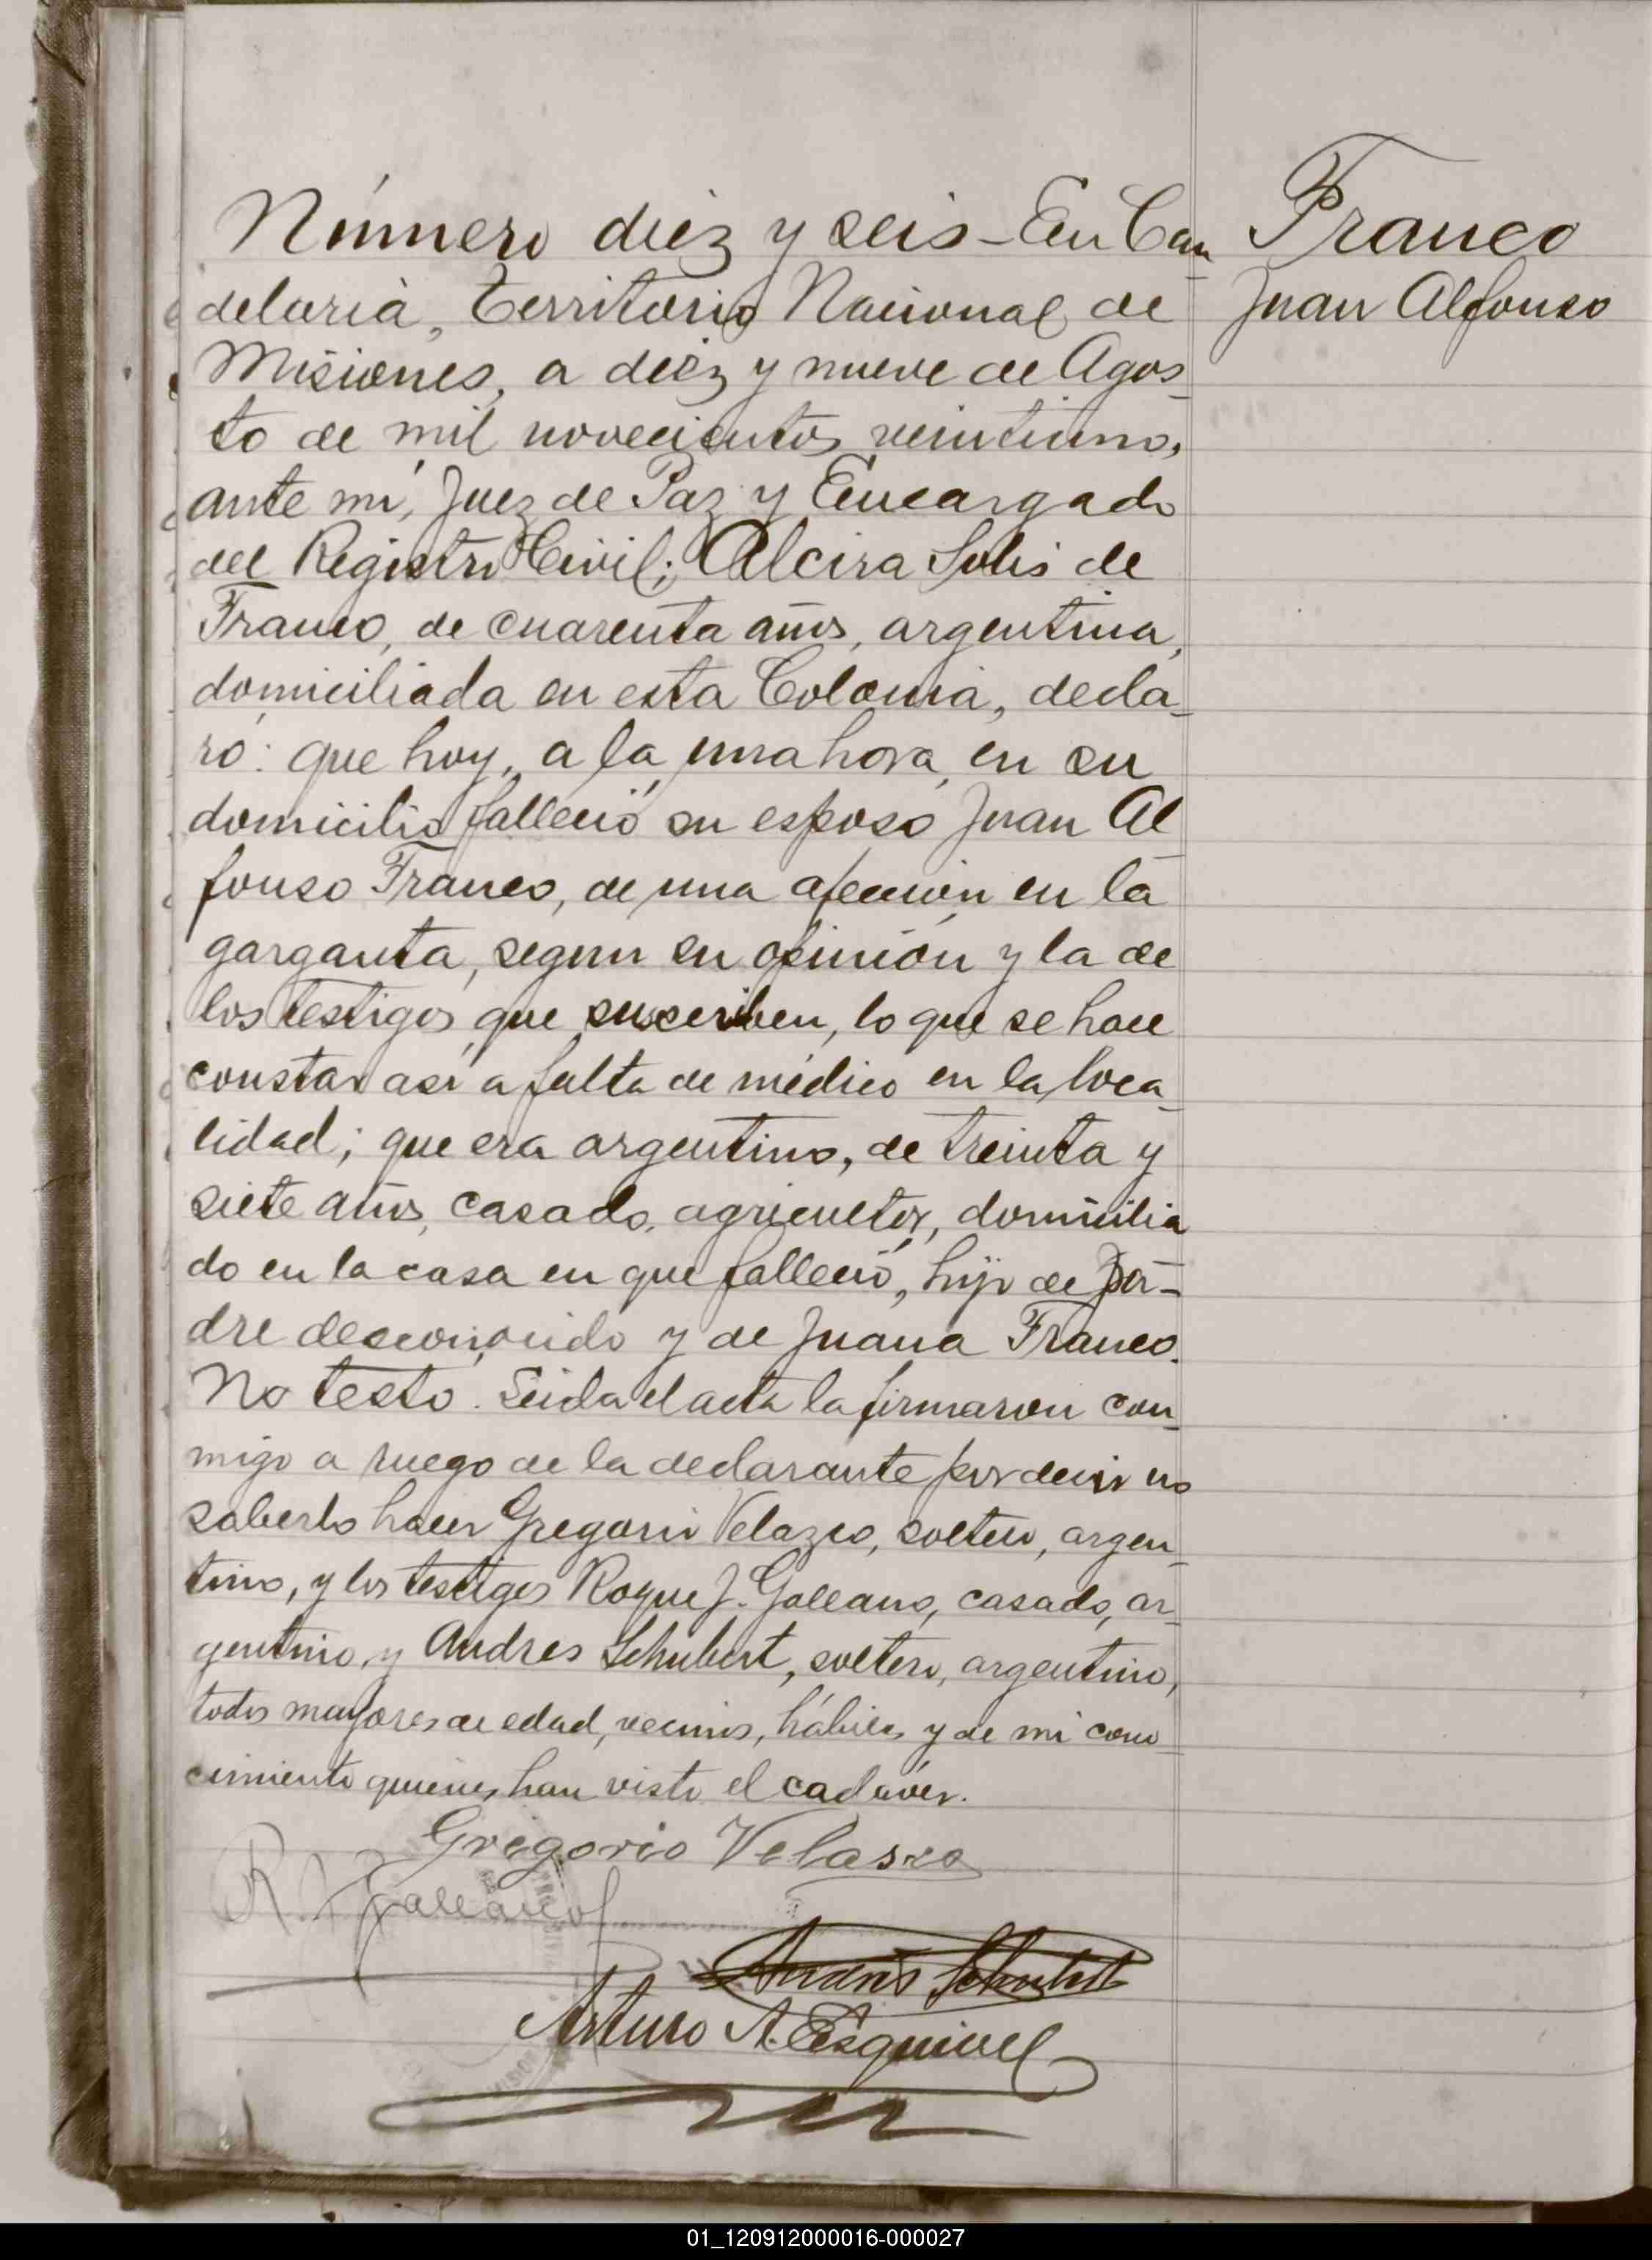 Número diez y seis - En Can
delaria, Territorio Nacional de
Misiones, a diez y nueve de Agos_
to de mil novecientos veintiuno,
ante mí, Juez de Paz y Encargado
del Registro Civil; Alcira Solis de
Franco, de cuarenta años, argentina,
domiciliada en esta Colonia, decla_
ró: que hoy, a la una hora, en su
domicilio falleció su esposo Juan Al_
fonso Franco, de una afección en la
garganta, segun su opinión y la de
los testigos que suscriben, lo que se hace
constar asi a falta de médico en la loca_
lidad; que era argentino, de treinta y
siete años, casado, agricultor, domicilia
do en la casa en que falleció, hijo de pa-
dre desconocido y de Juana Franco.
No testó. Leida el acta la firmaron con_
migo a ruego de la declarante por decir no
saberlo hacer Gregorio Velazco, soltero, argen_
tino, y los testigos Roque J. Galeano, casado, ar_
gentino, y Andres Schubert, soltero, argentino,
todos mayores de edad, vecinos, hábiles y de mi cono_
cimiento quienes han visto el cadáver.
Gregorio Velasco
R. J. Galeano
Andrés Schubert
Arturo A. Esquivel
Franco
Juan Alfonso
01_120912000016-000027